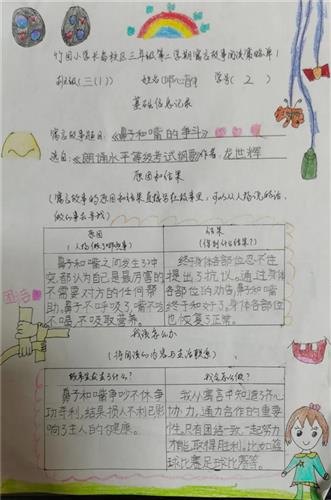 竹园小学长岛校区三年级第二学期寓言故事阅读策略单1
班级(三(1))
姓名
学号(2)
基础信息记录
寓言故事题目：《鼻子和嘴的争斗》
选自：《朗诵水平等级考试纲要》作者：龙世辉
原因和结果
(寓言故事的原因和结果直接写在故事里，可以从人物说的话，
做的事去寻找)
原因
(人物做了哪些事)
鼻子和嘴之间发生了冲
突，都认为自己是最厉害的
不需要对方的任何帮
助，鼻子不呼吸了，嘴不吃
不喝，不吸取营养。
结果
(得到什么结果？)
终于身体各部位忍不住
提出了抗议。通过身体
各部位的劝告，鼻子和嘴
终于和好了。身体各部位
也恢复了正常。
团结
我该怎么办
(将阅读的内容与生活联系)
故事里发生了什么？
鼻子和嘴争吵不休，争
功夺利，结果损人不利己，影
响了主人的健康。
我会怎么做？
我从寓言中知道了齐心
协力，通力合作的重要
性。只有团结一致，一起努力
才能取得胜利。比如篮
球比赛足球比赛等。